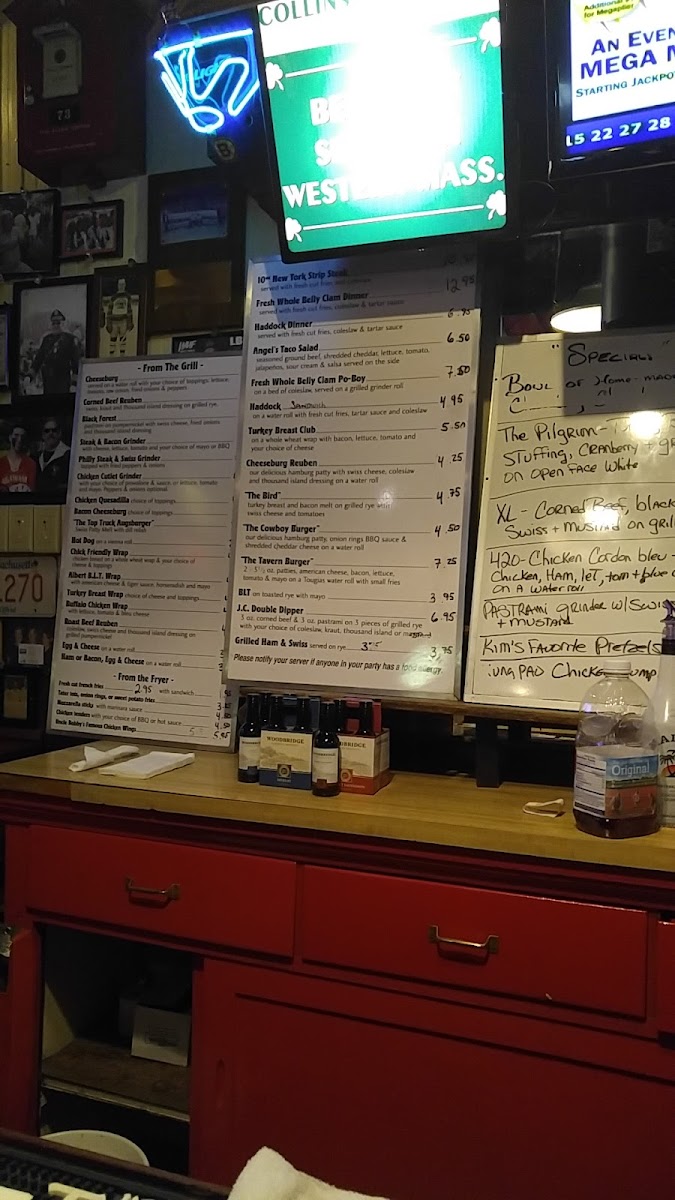 COLLINS
WEST MASS.
AN EVEN
MEGA M
STARTING JACKPO
15 22 27 28
73
- From The Grill -
Cheeseburg
served on a water roll with your choice of toppings: lettuce,
tomato, raw onion, fried onions & peppers
Corned Beef Reuben
swiss, kraut and thousand island dressing on grilled rye.
Black Forest
pastrami on pumpernickel with swiss cheese, fried onions
and thousand island
Steak & Bacon Grinder
with cheese, lettuce, tomato and your choice of mayo or BBQ
Philly Steak & Swiss Grinder
topped with fried peppers & onions
Chicken Cutlet Grinder
with your choice of provolone & sauce, or lettuce, tomato
and mayo. Peppers & onions optional
Chicken Quesadilla choice of toppings
Bacon Cheeseburg choice of toppings
"The Top Truck Augsburger"
Swiss Patty Melt with dill relish
Hot Dog on a vienna roll
Chick Friendly Wrap
chicken breast on a whole wheat wrap & your choice of
cheese & toppings
Albert B.L.T. Wrap
with american cheese & tiger sauce, horseradish and mayo
Turkey Breast Wrap choice of cheese and toppings
Buffalo Chicken Wrap
with lettuce, tomato & bleu cheese
Roast Beef Reuben
coleslaw, swiss cheese and thousand island dressing on
grilled pumpernickel
Egg & Cheese on a water roll
Ham or Bacon, Egg & Cheese on a water roll
- From the Fryer -
Fresh cut french fries 2.95 with sandwich
Tater tots, onion rings, or sweet potato fries
Mozzarella sticks with marinara sauce
Chicken tenders with your choice of BBQ or hot sauce 4.50
Uncle Bobby's Famous Chicken Wings 5.95
10oz New York Strip Steak
served with fresh cut fries and coleslaw
12.95
Fresh Whole Belly Clam Dinner
served with fresh cut fries, coleslaw & tartar sauce
8.95
Haddock Dinner
served with fresh cut fries, coleslaw & tartar sauce
6.50
Angel's Taco Salad
seasoned ground beef, shredded cheddar, lettuce, tomato,
jalapeños, sour cream & salsa served on the side
7.50
Fresh Whole Belly Clam Po-Boy
on a bed of coleslaw, served on a grilled grinder roll
4.95
Haddock Sandwich
on a water roll with fresh cut fries, tartar sauce and coleslaw
5.50
Turkey Breast Club
on a whole wheat wrap with bacon, lettuce, tomato and
your choice of cheese
4.25
Cheeseburg Reuben
our delicious hamburg patty with swiss cheese, coleslaw
and thousand island dressing on a water roll
4.75
"The Bird"
turkey breast and bacon melt on grilled rye with
swiss cheese and tomatoes
4.50
"The Cowboy Burger"
our delicious hamburg patty, onion rings BBQ sauce &
shredded cheddar cheese on a water roll
7.25
"The Tavern Burger"
2 - 5½ oz. patties, american cheese, bacon, lettuce,
tomato & mayo on a Tougias water roll with small fries
BLT on toasted rye with mayo 3.95
J.C. Double Dipper 6.95
3 oz. corned beef & 3 oz. pastrami on 3 pieces of grilled rye
with your choice of coleslaw, kraut, thousand island or mustard
Grilled Ham & Swiss served on rye 3.75
Please notify your server if anyone in your party has a food allergy.
"Specials"
Bowl of Home-made
The Pilgrim -
Stuffing, Cranberry + gr
on open face white
XL - Corned Beef, black
Swiss + mustard on gril
420 - Chicken Cordon bleu -
Chicken, Ham, leT, tom + blue c
on a water roll
PASTRAMI grinder w/ Swis
+ mustard
Kim's Favorite Pretzels
ung PAO Chicken Dump
WOODBRIDGE
DBRIDGE
Original
270